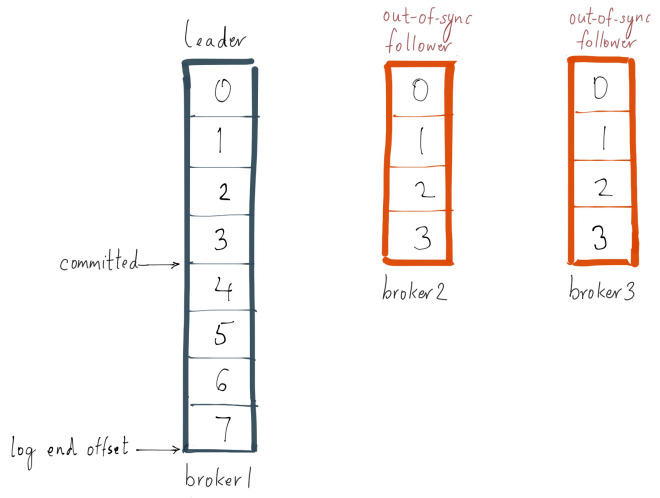 leader
0
1
2
3
4
5
6
7
broker1
committed
log end offset
out-of-sync
follower
0
1
2
3
broker2
out-of-sync
follower
0
1
2
3
broker3